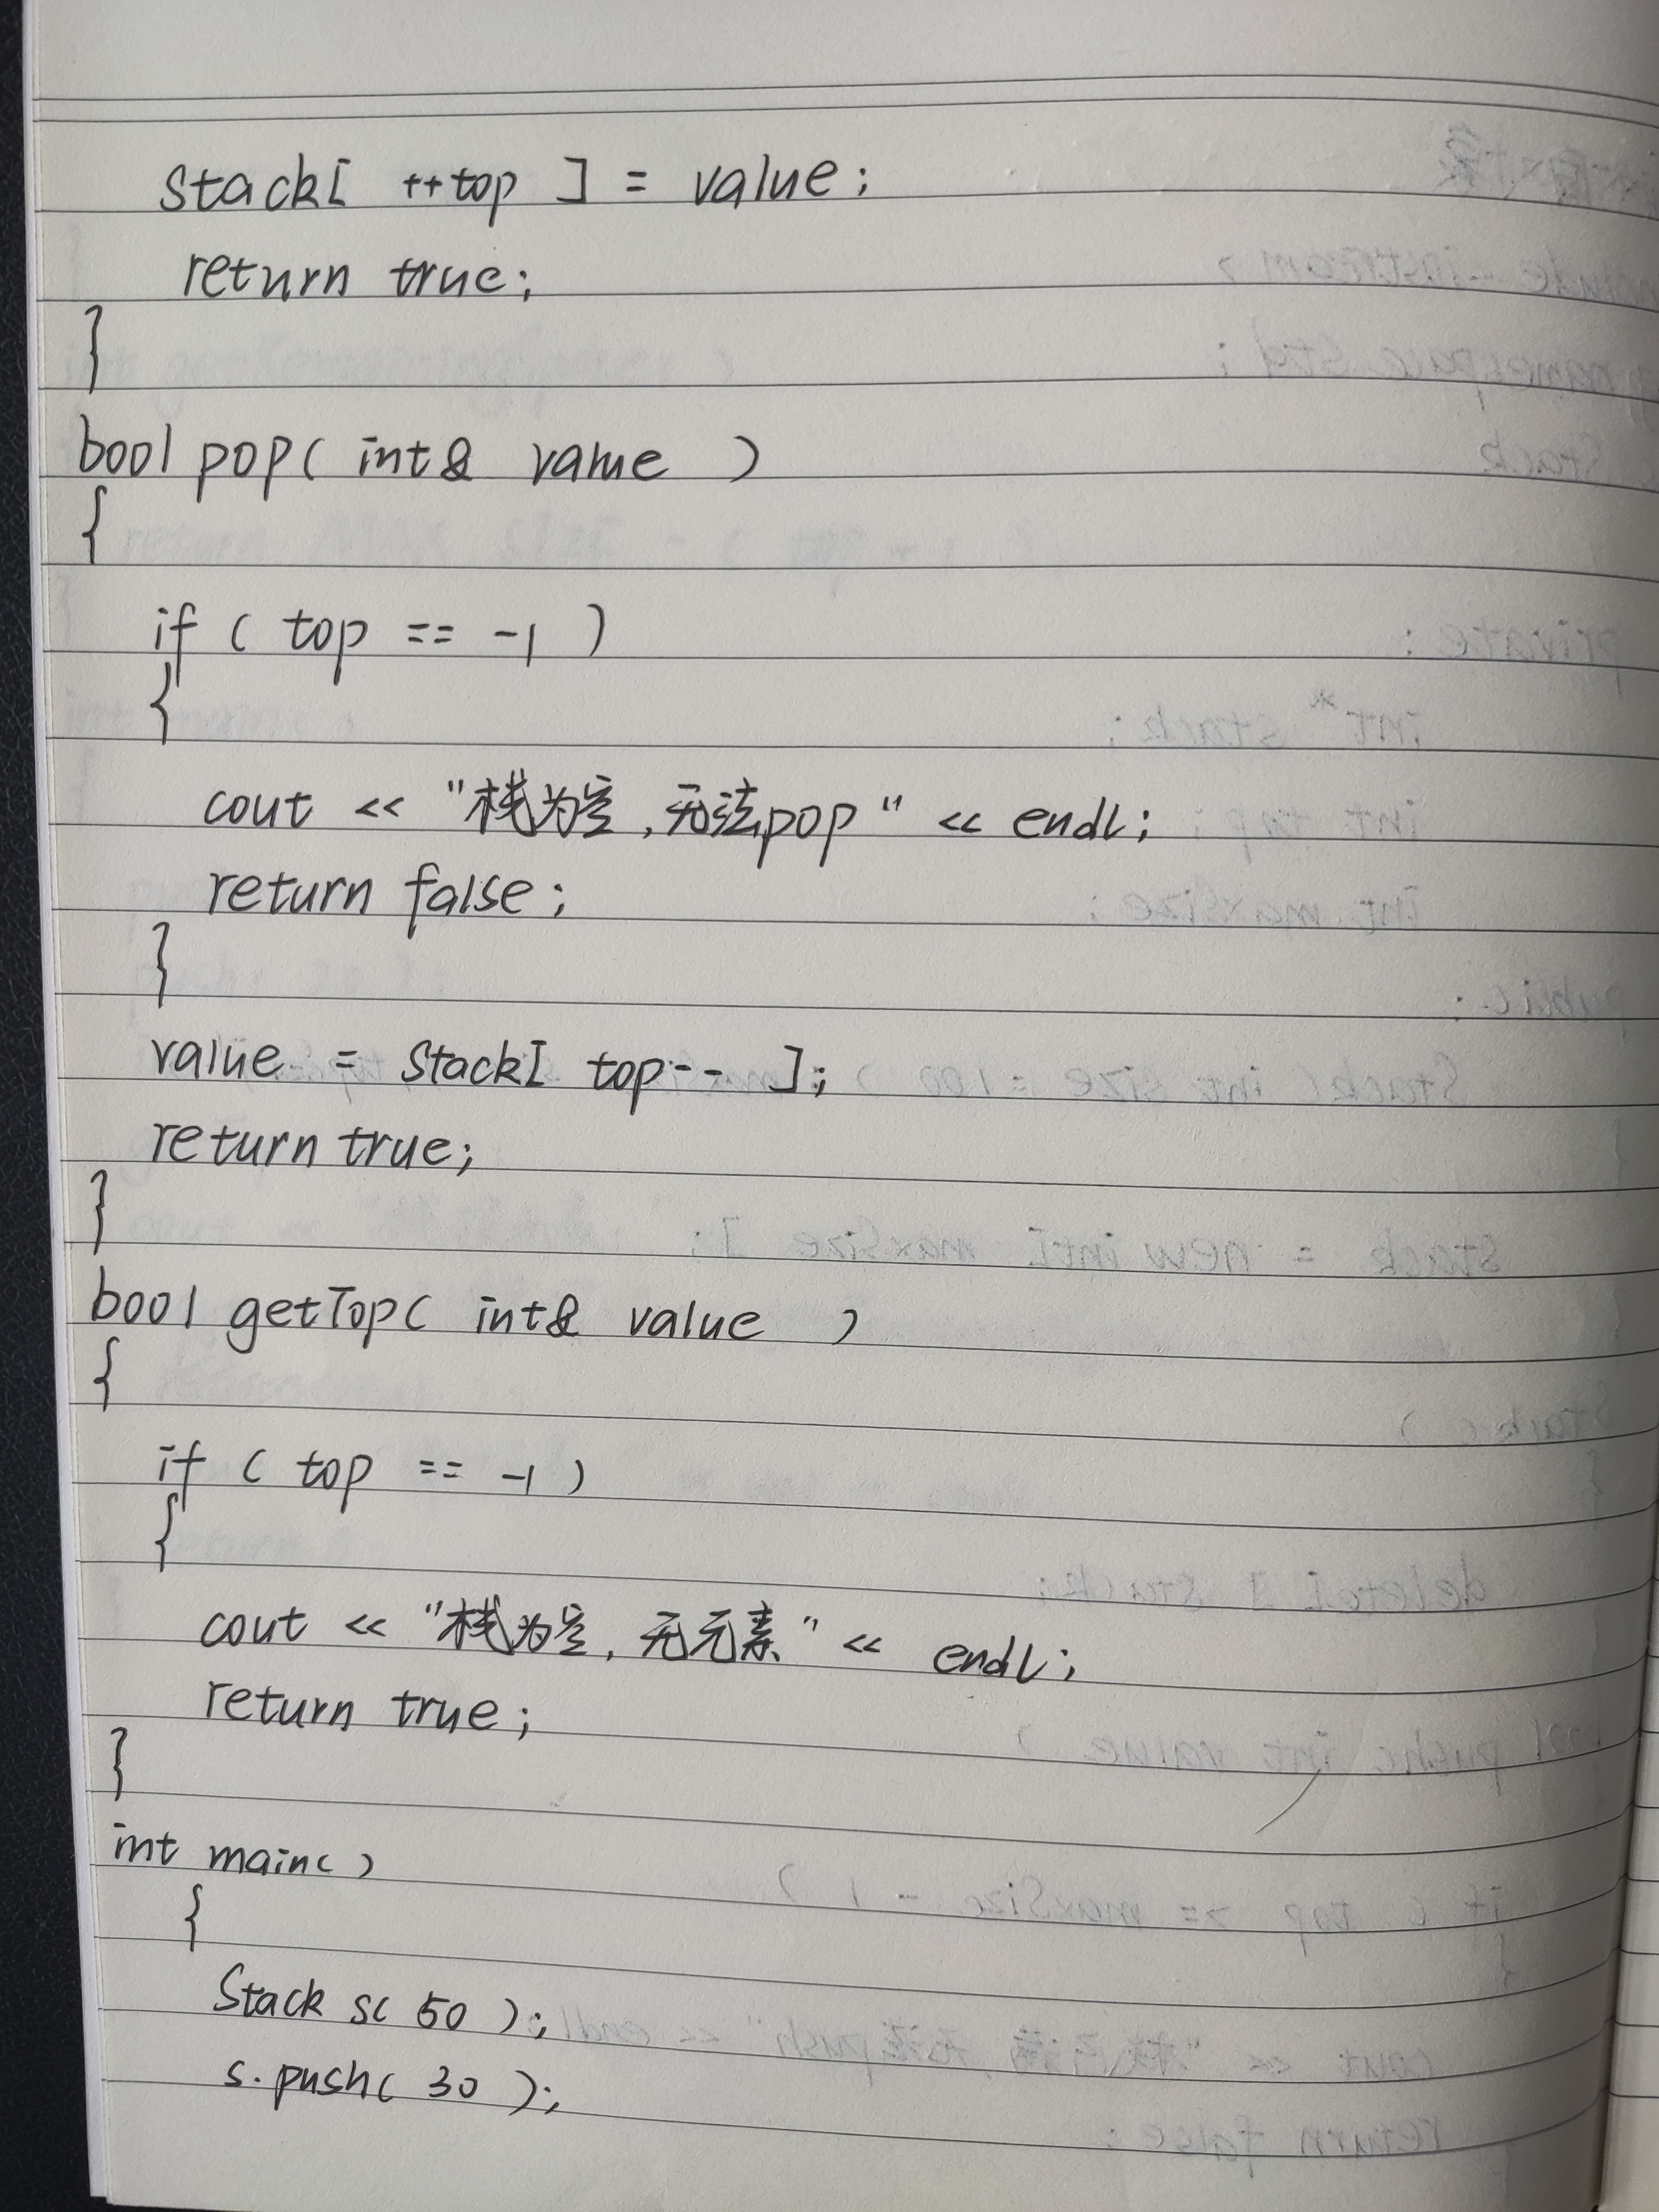 stack[ ++top ] = value;
return true;
}
bool pop( int& value )
{
if ( top == -1 )
{
cout << "栈为空,无法pop" << endl;
return false;
}
value = stack[ top-- ];
return true;
}
bool getTop( int& value )
{
if ( top == -1 )
{
cout << "栈为空,无元素" << endl;
return true;
}
int main()
{
Stack s( 50 );
s.push( 30 );